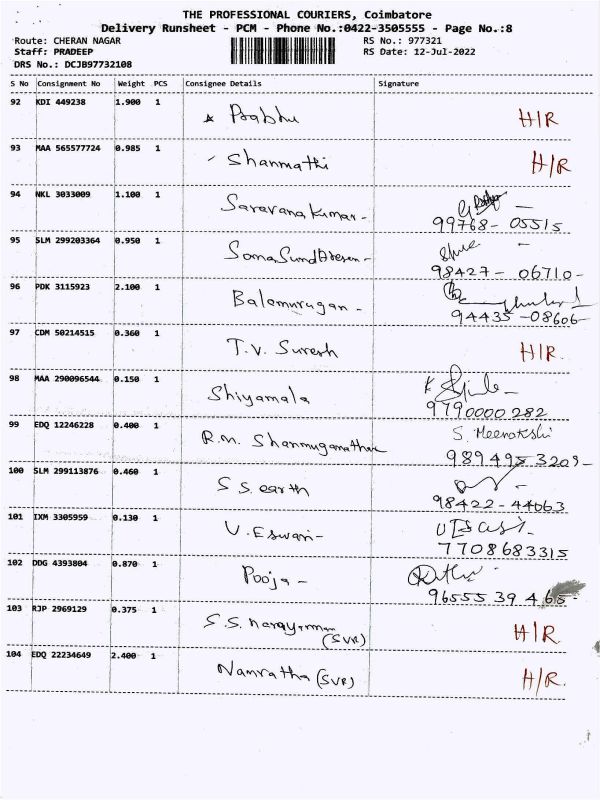 THE PROFESSIONAL COURIERS, Coimbatore
Delivery Runsheet - PCM - Phone No.:0422-3505555 - Page No.:8
Route: CHERAN NAGAR RS No.: 977321
Staff: PRADEEP RS Date: 12-Jul-2022
DRS No.: DCJB97732108
S No Consignment No Weight PCS Consignee Details Signature
92 KDI 449238 1.900 1 Prabhu H/R
93 MAA 565577724 0.985 1 Shanmathi H/R
94 NKL 3033009 1.100 1 Saravana Kumar -
99768- 05515
95 SLM 299203364 0.950 1 Soma Sundaresen -
98427 - 06710-
96 PDK 3115923 2.100 1 Balamurugan -
94435 -08606-
97 CDM 50214515 0.360 1 T.V. Suresh H/R.
98 MAA 290096544 0.150 1 Shiyamala
9790000 282
99 EDQ 12246228 0.400 1 R.M. Shanmuganathan S. Meenakshi
989495 3209-
100 SLM 299113876 0.460 1 S S. earth
98422-44063
101 IXM 3305959 0.130 1 V. Eswari-
7708683315
102 DDG 4393804 0.870 1 Pooja -
96555 39 465-
103 RJP 2969129 0.375 1 S.S. narayanan
(SVR) H/R.
104 EDQ 22234649 2.400 1 Namratha (SVR) H/R.